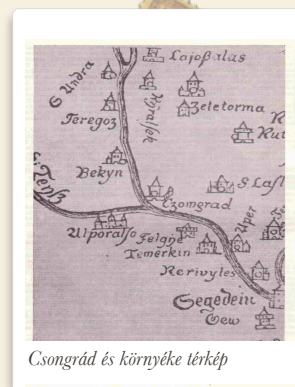 Lajoßalas
S Undra
Zeletorma
Teregoz
Kut
Bekyn
Czomgrad
Ulporalſo
Felgne
Temerkin
Kerivyles
Segedein
Cew
Csongrád és környéke térkép